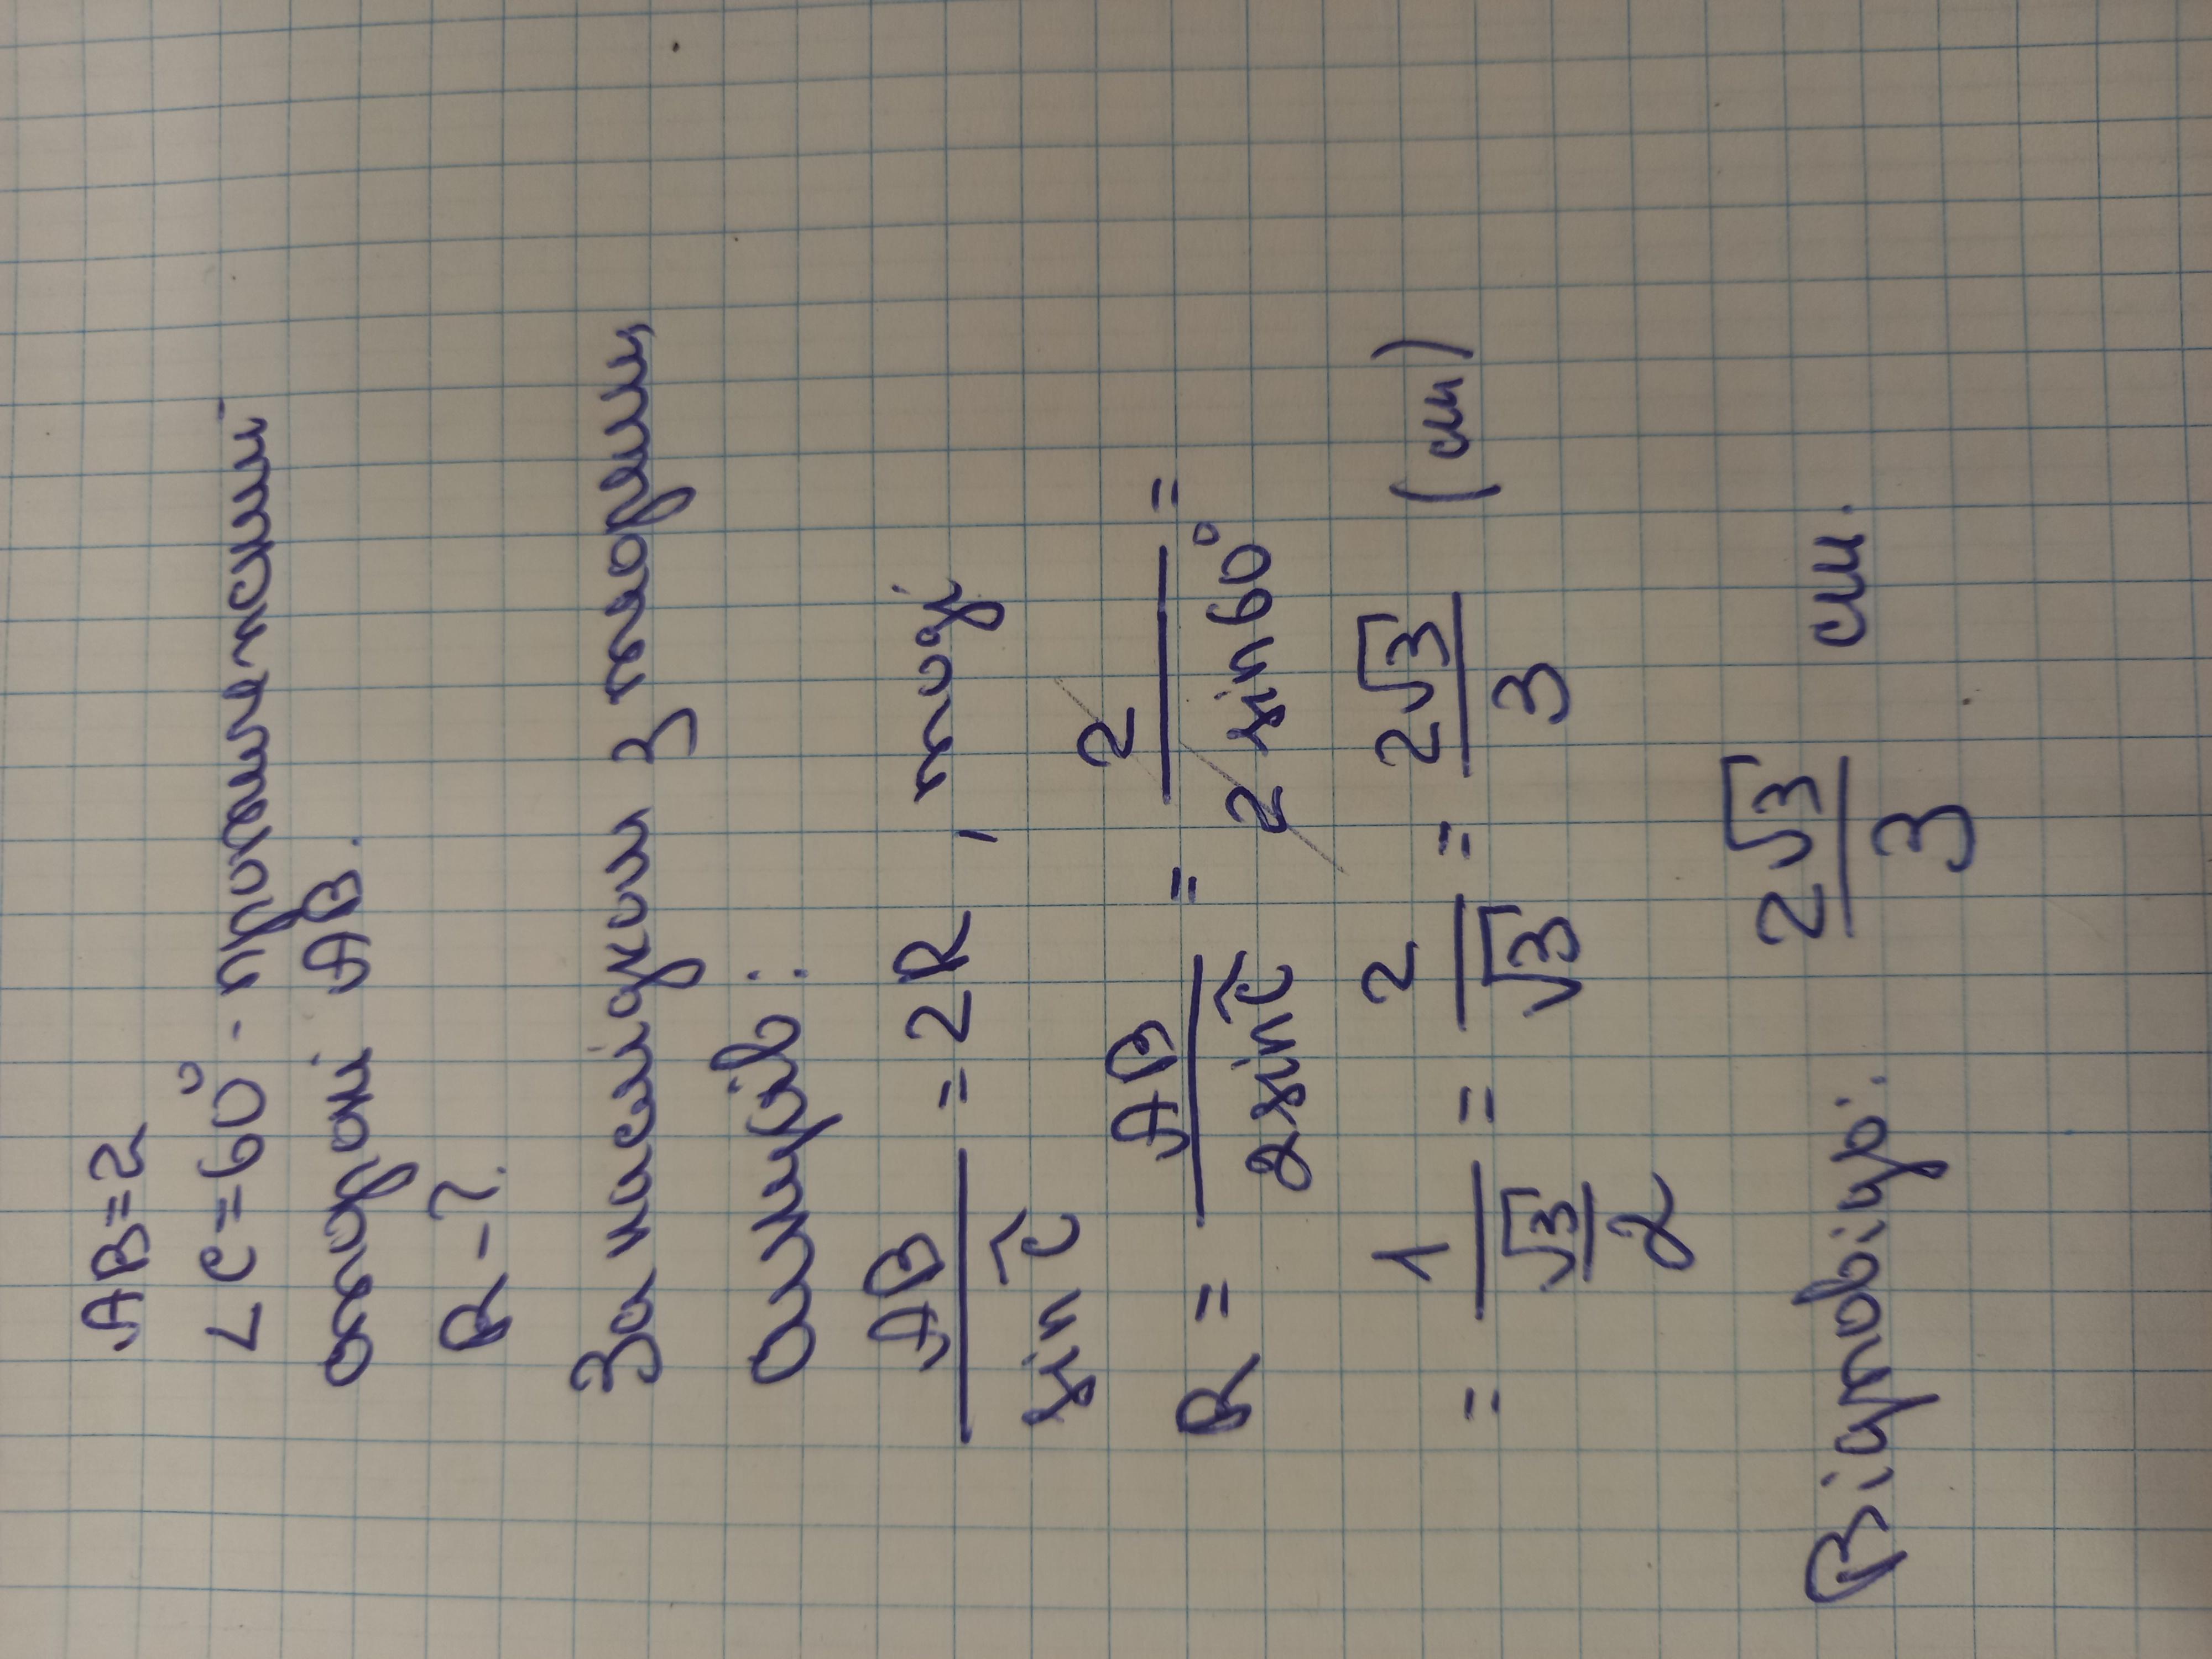 AB=2
∠C=60° - протилежний
стороні AB.
R-?
За наслідком з теореми
синусів:
AB/sin Ĉ = 2R, тоді
R = AB/2sinĈ = 2/2 sin 60° =
= 1/(√3/2) = 2/√3 = 2√3/3 (см)
Відповідь: 2√3/3 см.